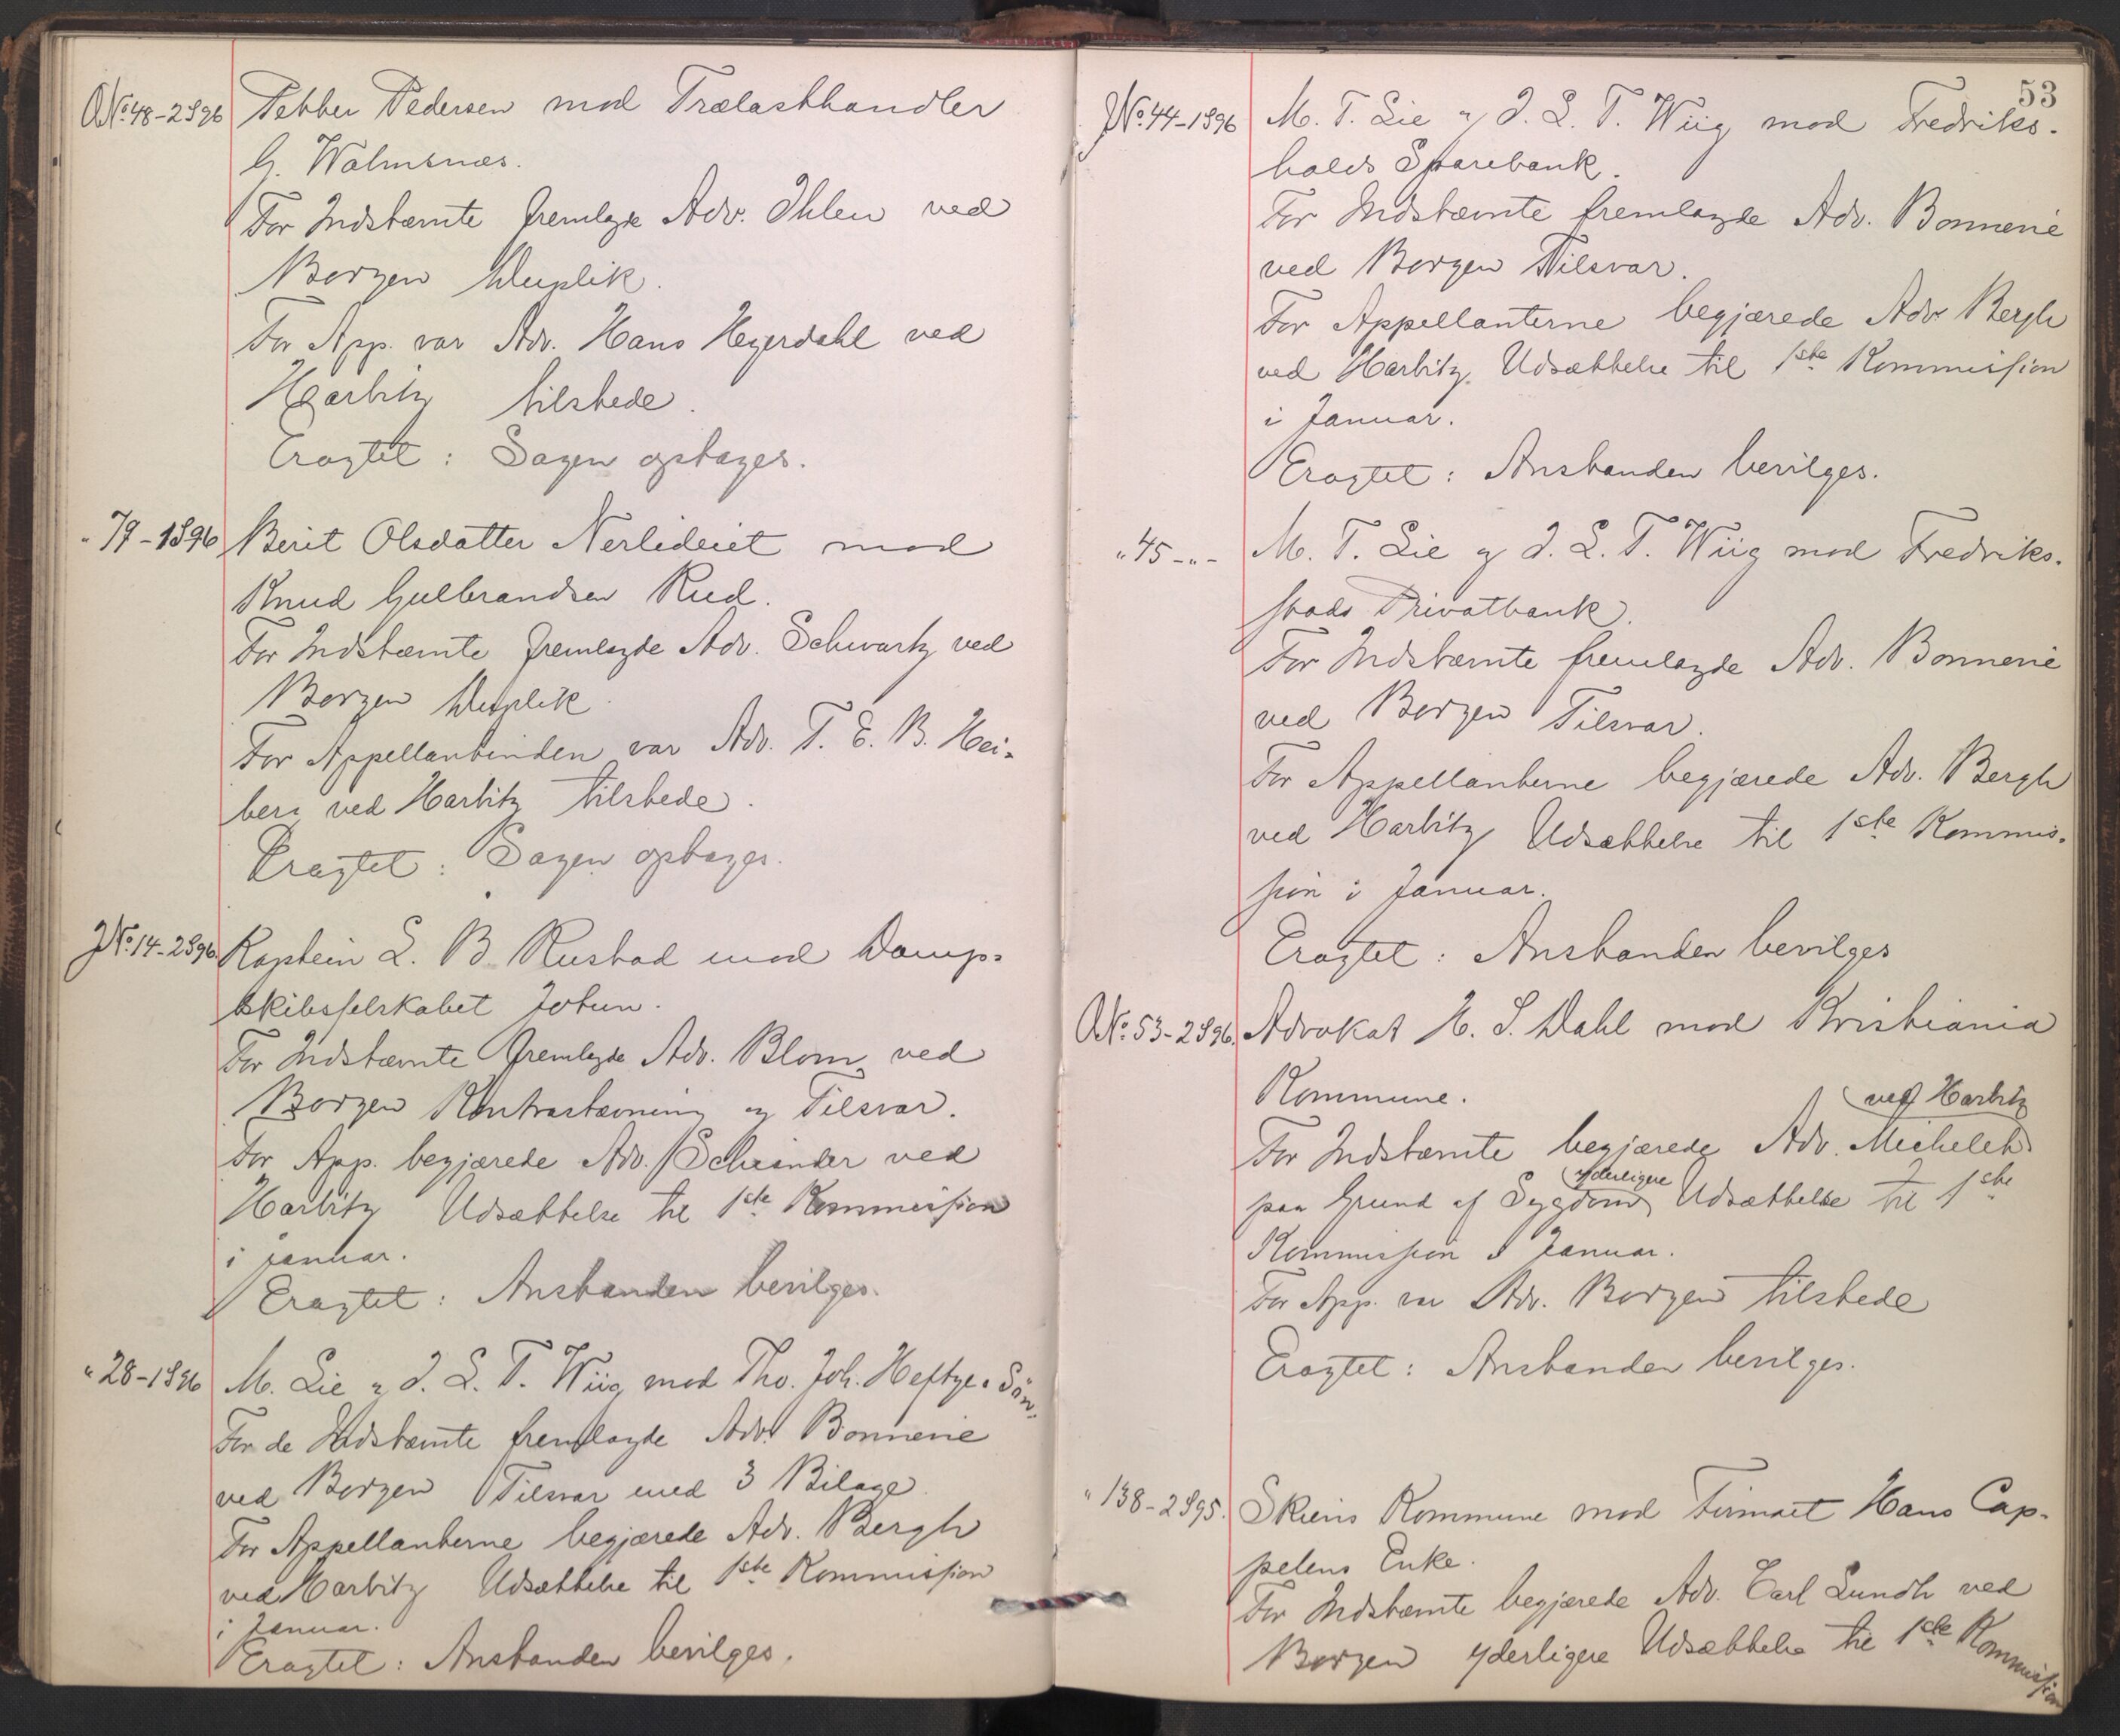 O№ 48-2896 Petter Pedersen mod Trælasthandler
G. Walmsnæs.
For Indstævnte fremlagde Adv. Ihlen ved
Borgen Duplik.
For App. var Adv. Hans Heyerdahl ved
Harbitz tilstede.
Eragtet: Sagen optages.
" 79-1896 Berit Olsdatter Nerlideret mod
Knud Gulbrandsen Rud.
For Indstævnte fremlagde Adv. Schwartz ved
Borgen Duplik.
For Appellantinden var Adv. T. E. B. Hei-
berg ved Harbitz tilstede.
Eragtet: Sagen optages.
J№ 14-2896. Kaptein L. B. Rustad mod Damp-
skibsselskabet Jotun.
For Indstævnte fremlagde Adv. Blom ved
Borgen Kontrastævning og Tilsvar.
For App. begjærede Adv. Scheander ved
Harbitz Udsættelse til 1ste Kommission
i Januar.
Eragtet: Anstanden bevilges.
" 28-1896 M. Lie og J. L. T. Wiig mod Tho. Joh. Heftye & Søn.
For de Indstævnte fremlagde Adv. Bonnevie
ved Borgen Tilsvar med 3 Bilage.
For Appellanterne begjærede Adv. Bergh
ved Harbitz Udsættelse til 1ste Kommission
i Januar.
Eragtet: Anstanden bevilges.
53
J№ 44-1896 M. T. Lie og J. L. T. Wiig mod Fredriks-
halds Sparebank.
For Indstævnte fremlagde Adv. Bonnevie
ved Borgen Tilsvar.
For Appellanterne begjærede Adv. Bergh
ved Harbitz Udsættelse til 1ste Kommission
i Januar.
Eragtet: Anstanden bevilges.
" 45 - " - M. T. Lie og J. L. T. Wiig mod Fredriks-
stads Privatbank.
For Indstævnte fremlagde Adv. Bonnevie
ved Borgen Tilsvar.
For Appellanterne begjærede Adv. Bergh
ved Harbitz Udsættelse til 1ste Kommis-
sion i Januar.
Eragtet: Anstanden bevilges
O№ 53-2896. Advokat H. S. Dahl mod Kristiania
Kommune.
ved Harbitz
For Indstævnte begjærede Adv. Michelet
yderligere
paa Grund af Sygdom Udsættelse til 1ste
Kommission i Januar.
For App. var Adv. Borgen tilstede
Eragtet: Anstanden bevilges.
" 138-2895. Skiens Kommune mod Firmaet Hans Cap-
pelens Enke.
For Indstævnte begjærede Adv. Carl Lundh ved
Borgen yderligere Udsættelse til 1ste Kommission